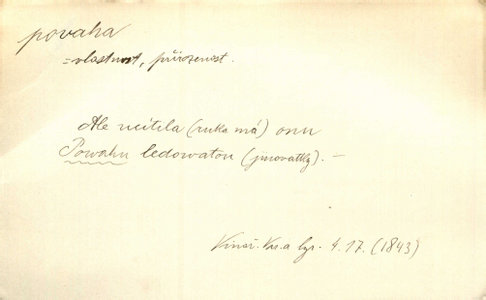 povaha
= vlastnost, přirozenost.
Ale ucítila (ruka má) onu
Powahu ledowatou (jinovatky). —
Vinař. Kr. a lyr. 4. 17. (1843)